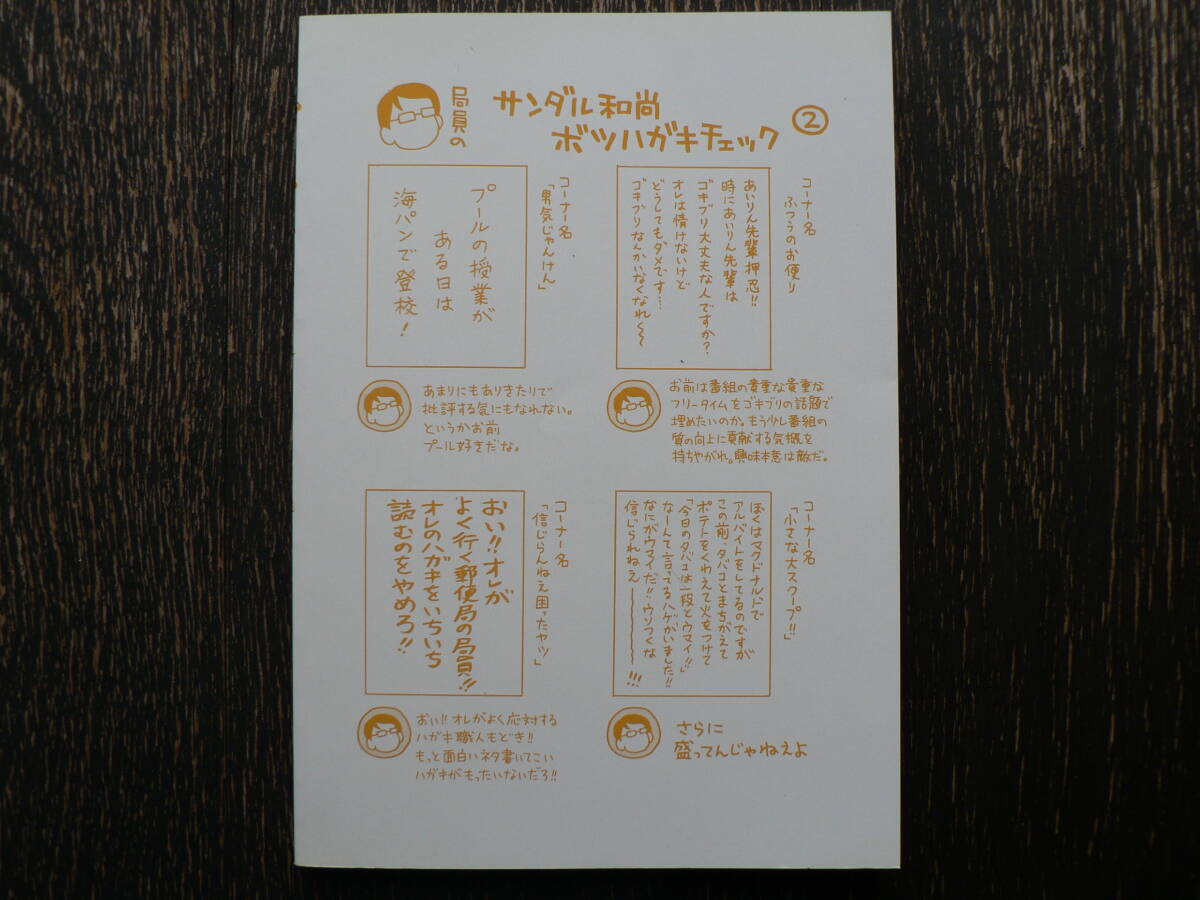 局員の
サンダル和尚
ボツハガキチェック
②
コーナー名
ふつうのお便り
あいりん先輩押忍!!
時にあいりん先輩は
ゴキブリ大丈夫な人ですか?
オレは情けないけど
どうしても、ダメです…
ゴキブリなんかいなくなれ〜〜
お前は番組の貴重な貴重な
フリータイムをゴキブリの話題で
埋めたいのか。もう少し番組の
質の向上に貢献する気概を
持ちやがれ。興味本意は敵だ。
コーナー名
「男気じゃんけん」
プールの授業が
ある日は
海パンで登校!
あまりにもありきたりで
批評する気にもなれない。
というかお前
プール好きだな。
コーナー名
「小さな大スクープ!!」
ぼくはマクドナルドで
アルバイトをしてるのですが
この前、タバコとまちがえて
ポテトをくわえて火をつけて
「今日のタバコは一段とウマイ!!」
なーんて言ってるハゲがいました!!
なにがウマイだ!!ウソつくな
信じられねえーーー!!!
さらに
盛ってんじゃねえよ
コーナー名
「信じらんねえ困ったヤツ」
おい!!オレが
よく行く郵便局の局員!!
オレのハガキをいちいち
読むのをやめろ!!
おい!!オレがよく応対する
ハガキ職人もどき!!
もっと面白いネタ書いてこい
ハガキがもったいないだろ!!